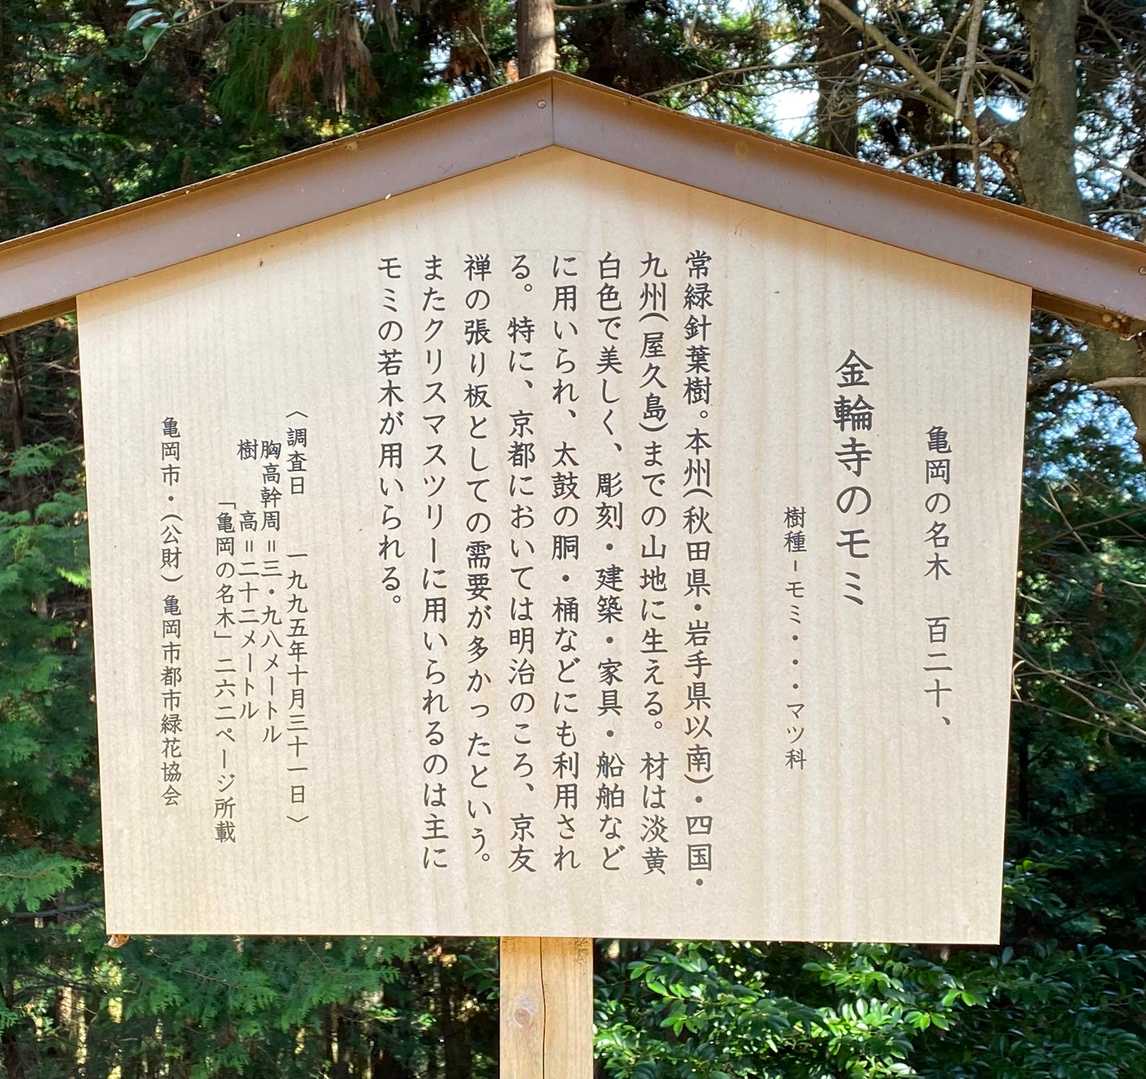 亀岡の名木　百二十、
金輪寺のモミ
樹種－モミ・・・マツ科
常緑針葉樹。本州(秋田県・岩手県以南)・四国・
九州(屋久島)までの山地に生える。材は淡黄
白色で美しく、彫刻・建築・家具・船舶など
に用いられ、太鼓の胴・桶などにも利用され
る。特に、京都においては明治のころ、京友
禅の張り板としての需要が多かったという。
またクリスマスツリーに用いられるのは主に
モミの若木が用いられる。
〈調査日　一九九五年十月三十一日〉
胸高幹周＝三・九八メートル
樹　　高＝二十二メートル
「亀岡の名木」二六二ページ所載
亀岡市・(公財)亀岡市都市緑花協会